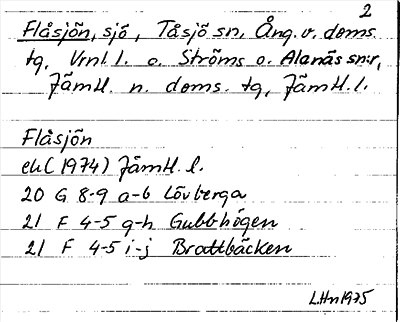 2
Flåsjön, sjö, Tåsjö sn, Ång. v. doms.
tg, Vrnl. l. o. Ströms o. Alanäs sn:r,
Jämtl. n. doms. tg, Jämtl. l.
Flåsjön
ek (1974) Jämtl. l.
20 G 8-9 a-b Lövberga
21 F 4-5 g-h Gubbhögen
21 F 4-5 i-j Brattbäcken
L.Hn 1975